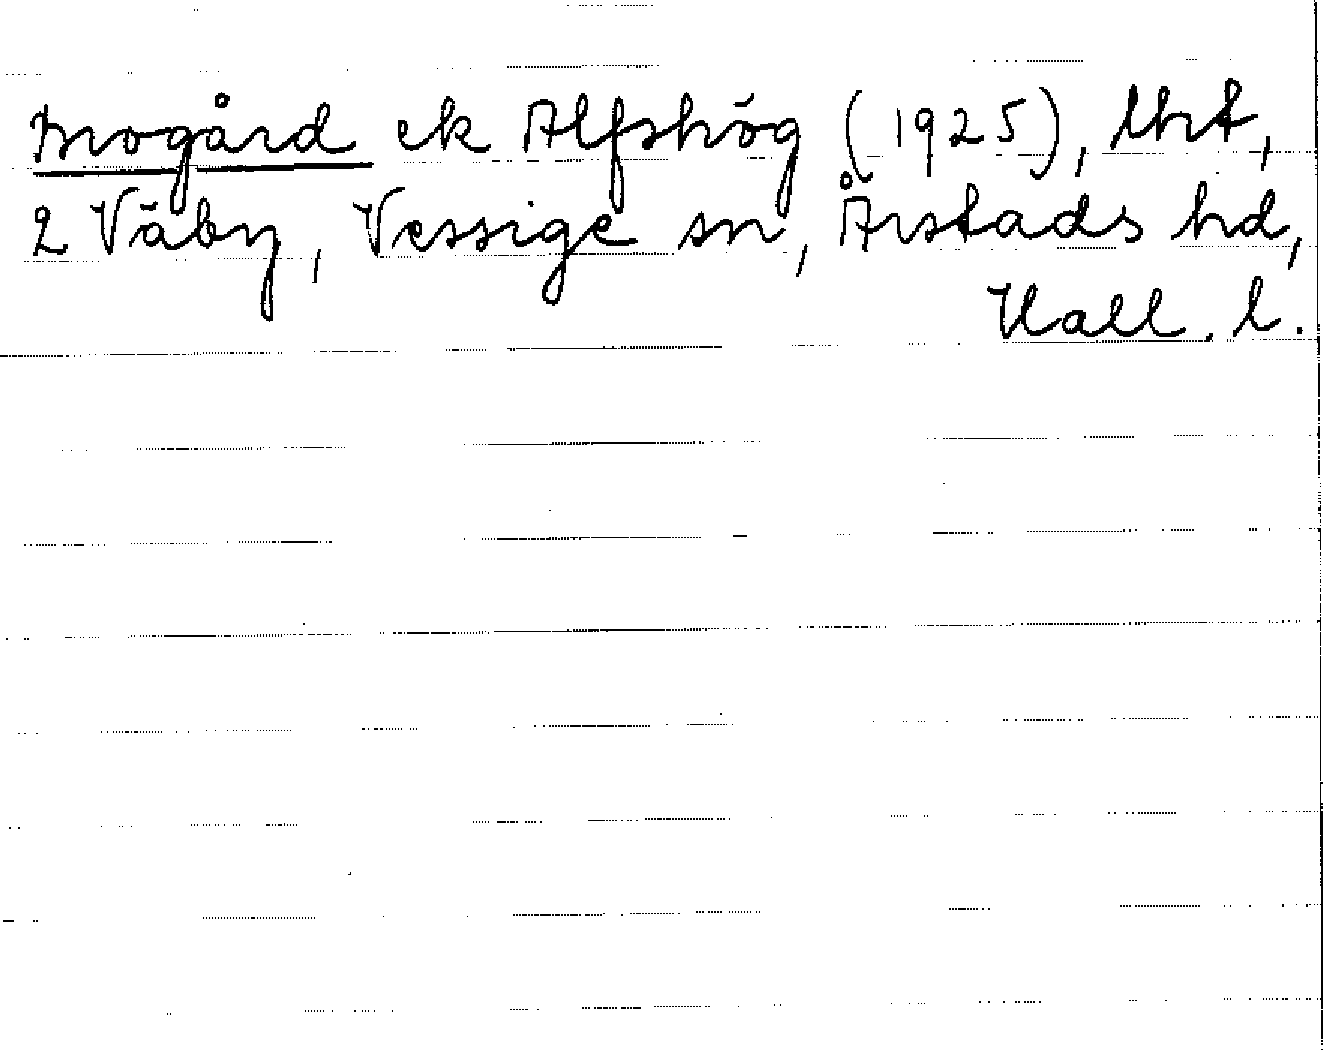 Brogård ek Alfshög (1925), lht,
2 Väby, Vessige sn, Årstads hd,
Hall. l.